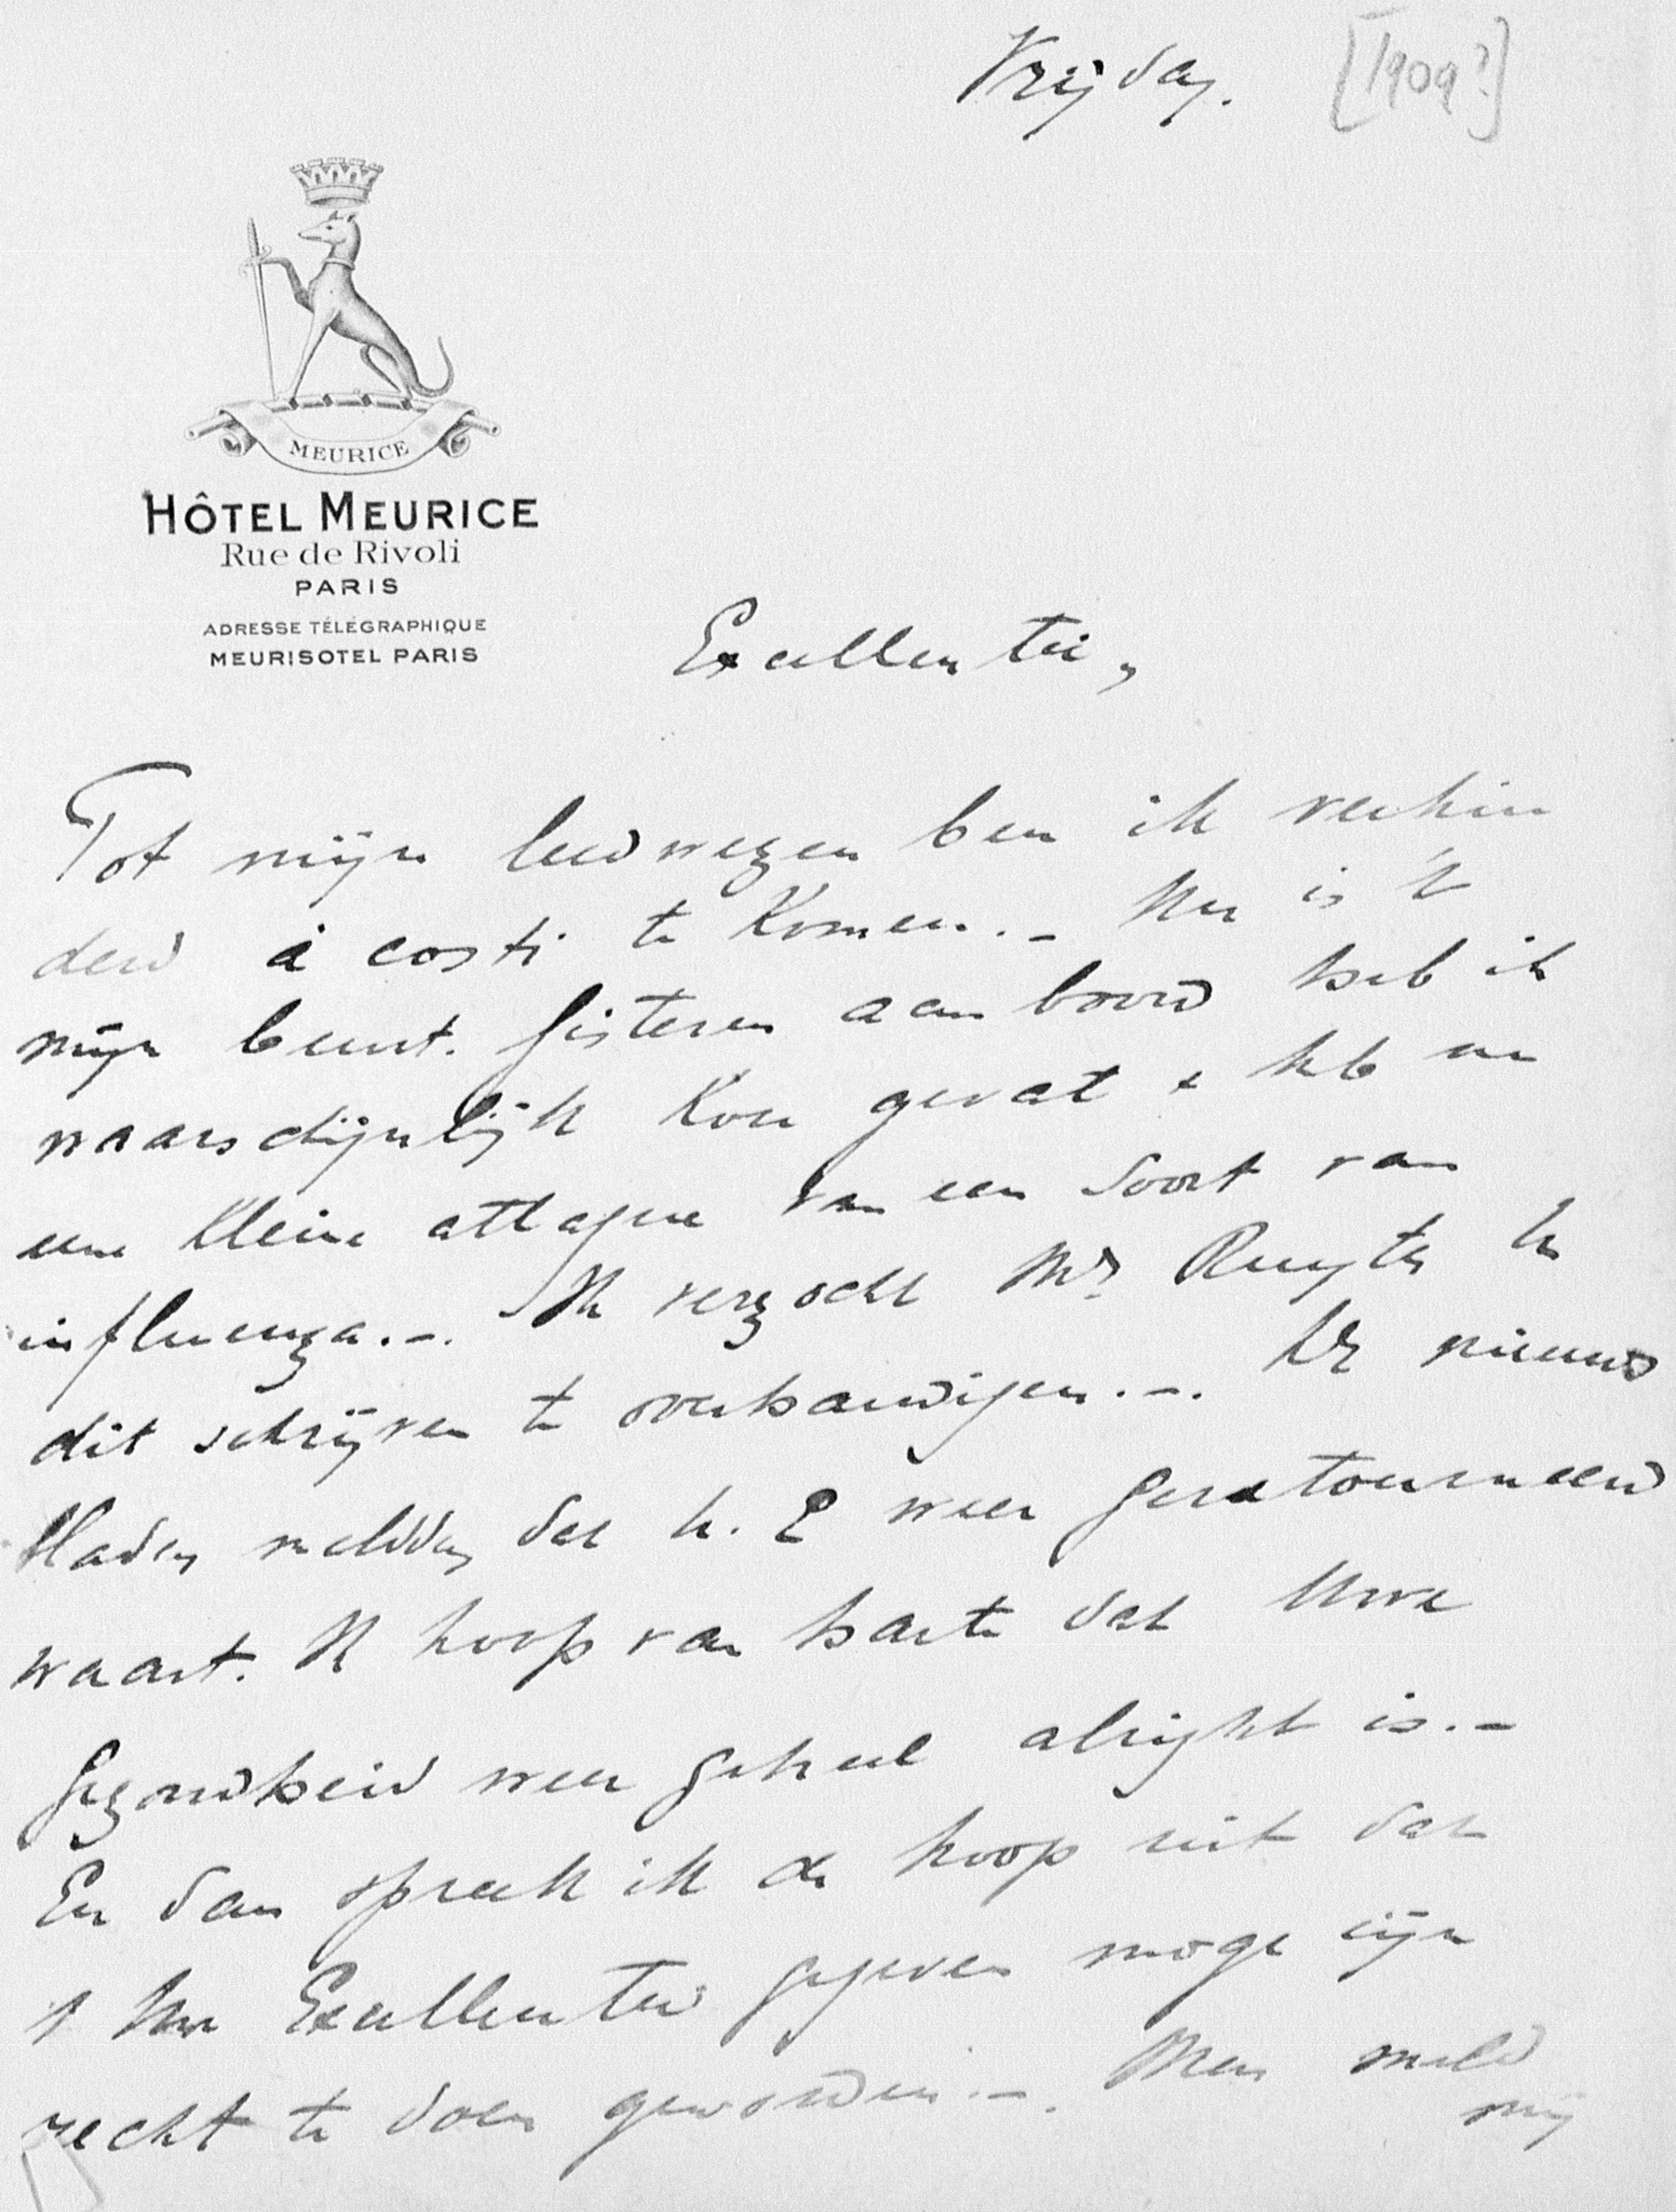 Vrijdag. [1909?]
MEURICE
HÔTEL MEURICE
Rue de Rivoli
PARIS
ADRESSE TÉLÉGRAPHIQUE
MEURISOTEL PARIS
Excellentie,
Tot mijn leedwezen ben ik verhin
derd à costi te komen. - Nu is 't
mijn beurt. Gisteren aan boord heb ik
waarschijnlijk kou gevat + heb nu
eene kleine attaque van een soort van
influenza. -. Ik verzocht Mr. Ruyter U
dit schrijven te overhandigen. -. De nieuws
bladen meldden dat U. E weer geretourneerd
waart. Ik hoop van harte dat Uwe
gezondheid weer geheel alright is. -
En dan spreek ik de hoop uit dat
't Uwe Excellentie gegeven moge zijn
recht te doen geworden. -. Men meld
mij